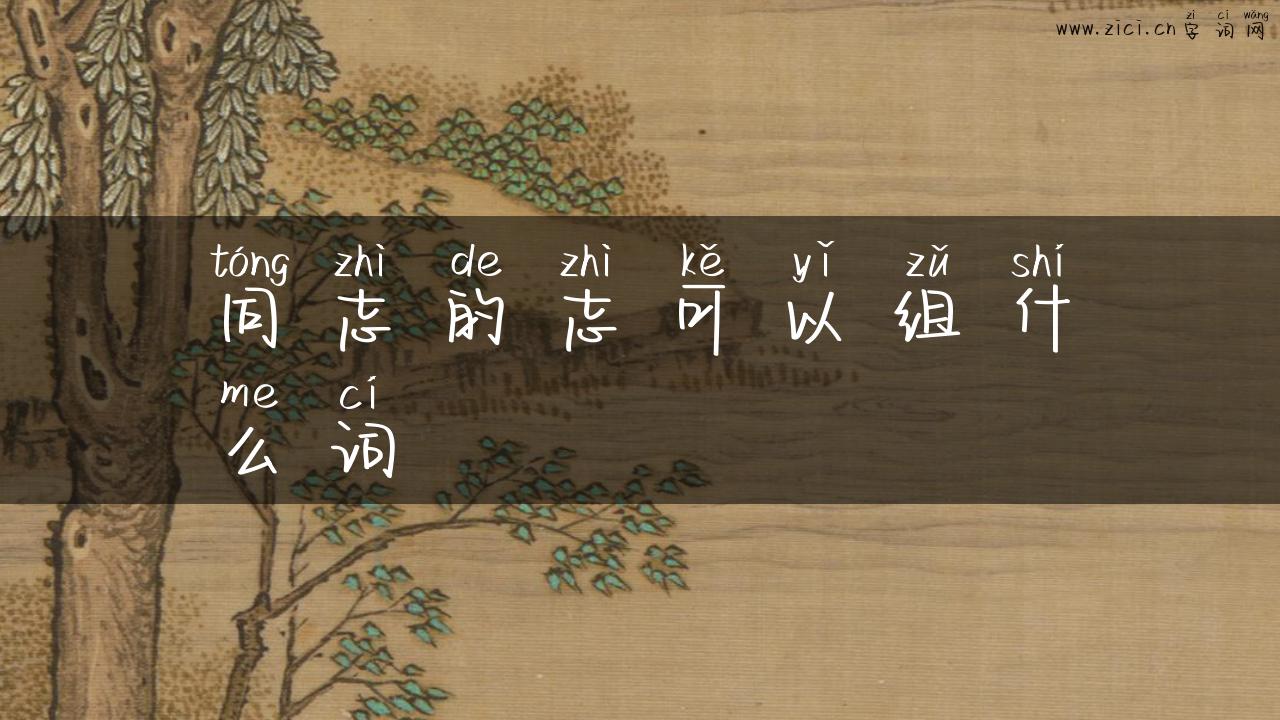 zì cí wǎng
www.zici.cn 字词网
tóng zhì de zhì kě yǐ zǔ shí
同志的志可以组什
me cí
么词